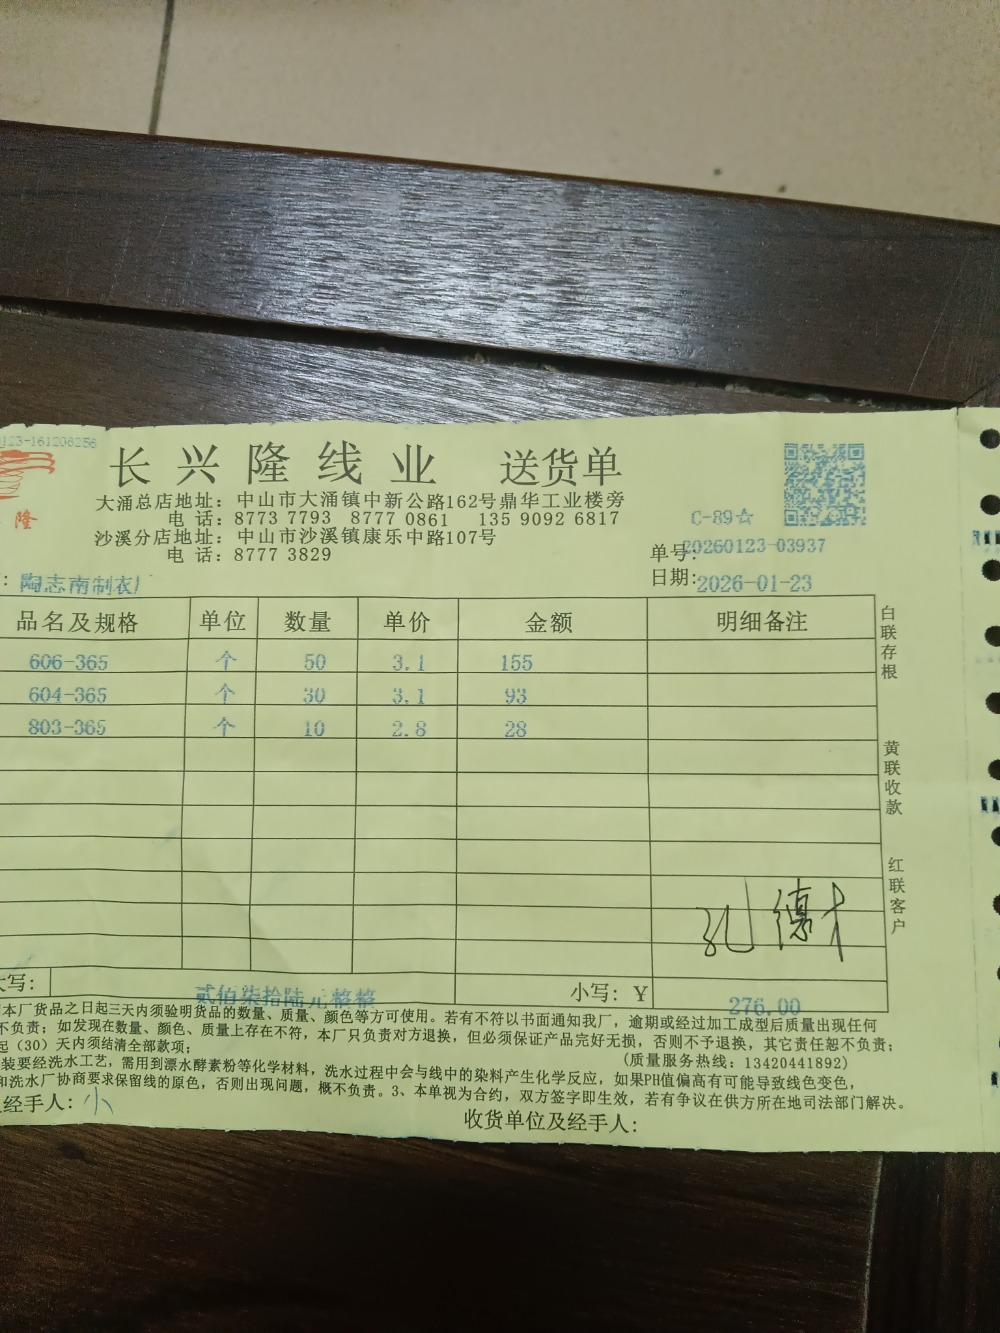 123-161206256
长兴隆线业 送货单
隆
大涌总店地址：中山市大涌镇中新公路162号鼎华工业楼旁
电 话：8773 7793 8777 0861 135 9092 6817
沙溪分店地址：中山市沙溪镇康乐中路107号
电 话：8777 3829
C-89☆
单号：20260123-03937
日期：2026-01-23
：陶志南制衣厂
品名及规格 单位 数量 单价 金额 明细备注
606-365 个 50 3.1 155
604-365 个 30 3.1 93
803-365 个 10 2.8 28
白联存根
黄联收款
红联客户
大写： 贰佰柒拾陆元整整 小写：￥ 276.00
本厂货品之日起三天内须验明货品的数量、质量、颜色等方可使用。若有不符以书面通知我厂，逾期或经过加工成型后质量出现任何
不负责；如发现在数量、颜色、质量上存在不符，本厂只负责对方退换，但必须保证产品完好无损，否则不予退换，其它责任恕不负责；
起（30）天内须结清全部款项； (质量服务热线：13420441892)
装要经洗水工艺，需用到漂水酵素粉等化学材料，洗水过程中会与线中的染料产生化学反应，如果PH值偏高有可能导致线色变色，
和洗水厂协商要求保留线的原色，否则出现问题，概不负责。3、本单视为合约，双方签字即生效，若有争议在供方所在地司法部门解决。
经手人：小 收货单位及经手人：